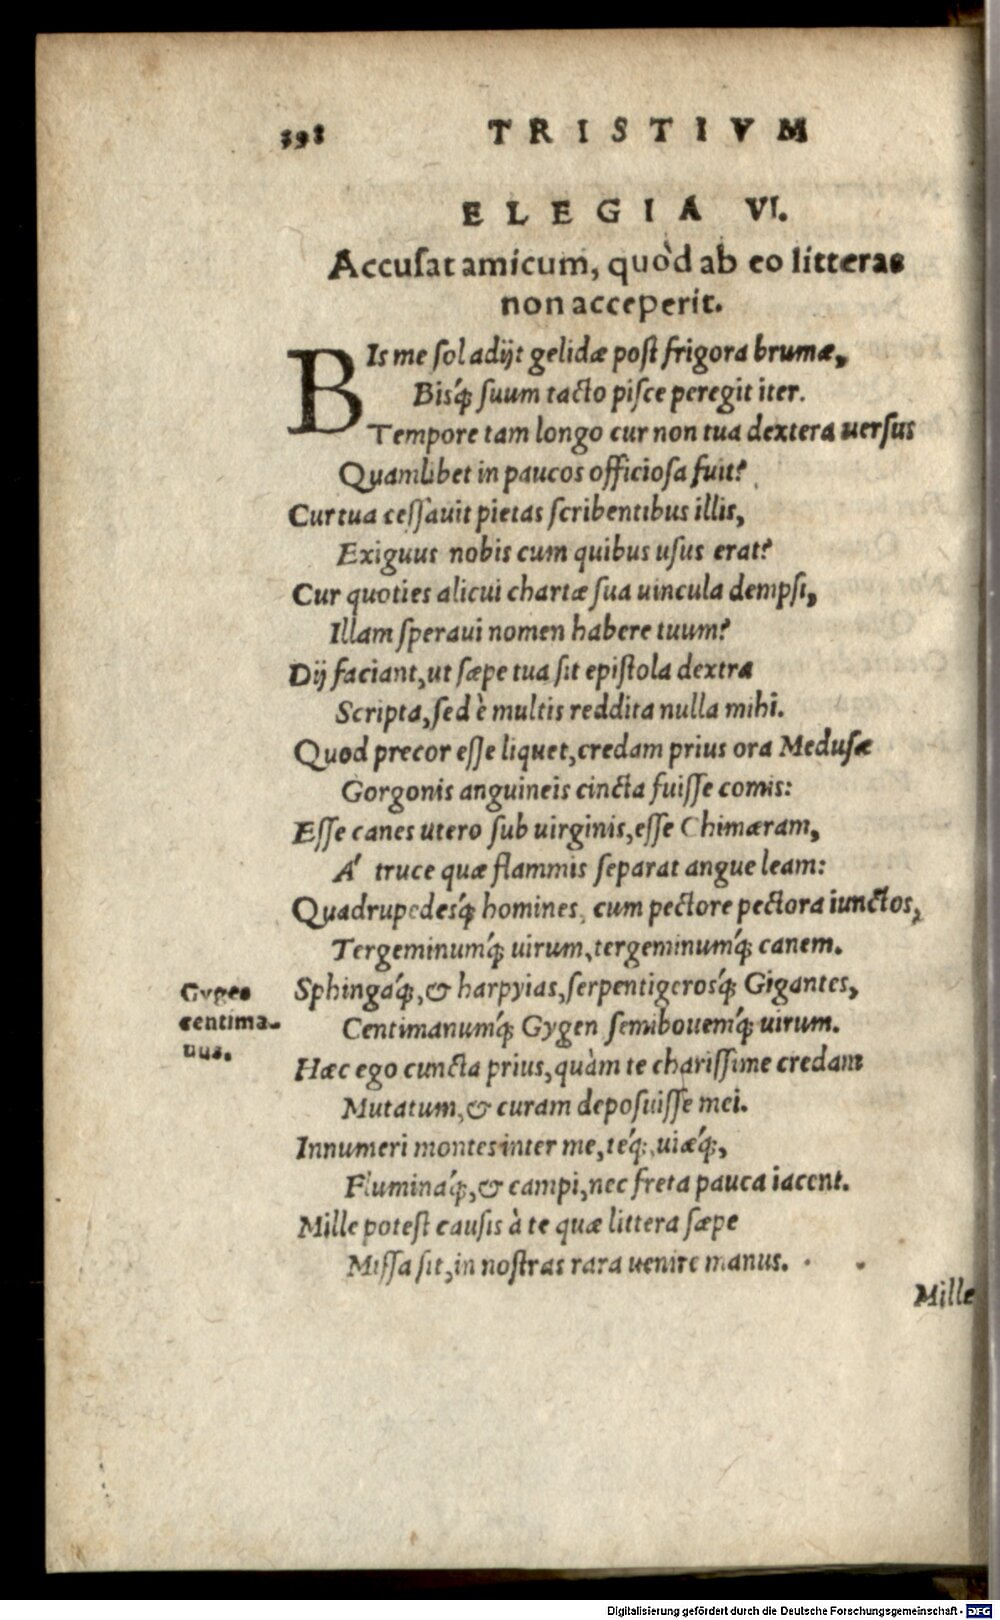 398 TRISTIVM
ELEGIA VI.
Accusat amicum, quòd ab eo litteras
non acceperit.
BIs me sol adijt gelidæ post frigora brumæ,
Bisq́; suum tacto pisce peregit iter.
Tempore tam longo cur non tua dextera uersus
Quamlibet in paucos officiosa fuit?
Cur tua cessauit pietas scribentibus illis,
Exiguus nobis cum quibus usus erat?
Cur quoties alicui chartæ sua uincula dempsi,
Illam speraui nomen habere tuum?
Dij faciant, ut sæpe tua sit epistola dextra
Scripta, sed è multis reddita nulla mihi.
Quod precor esse liquet, credam prius ora Medusæ
Gorgonis anguineis cincta fuisse comis:
Esse canes utero sub uirginis, esse Chimæram,
Á truce quæ flammis separat angue leam:
Quadrupedesq́; homines, cum pectore pectora iunctos,
Tergeminumq́; uirum, tergeminumq́; canem.
Sphingaq́;, & harpyias, serpentigerosq́; Gigantes,
Gyges
Centimanumq́; Gygen semibouemq́; uirum.
centima-
nus.
Hæc ego cuncta prius, quàm te charissime credam
Mutatum, & curam deposuisse mei.
Innumeri montes inter me, teq́;, uiæq́;,
Fluminaq́;, & campi, nec freta pauca iacent.
Mille potest causis à te quæ littera sæpe
Missa sit, in nostras rara uenire manus.
Mille
Digitalisierung gefördert durch die Deutsche Forschungsgemeinschaft - DFG